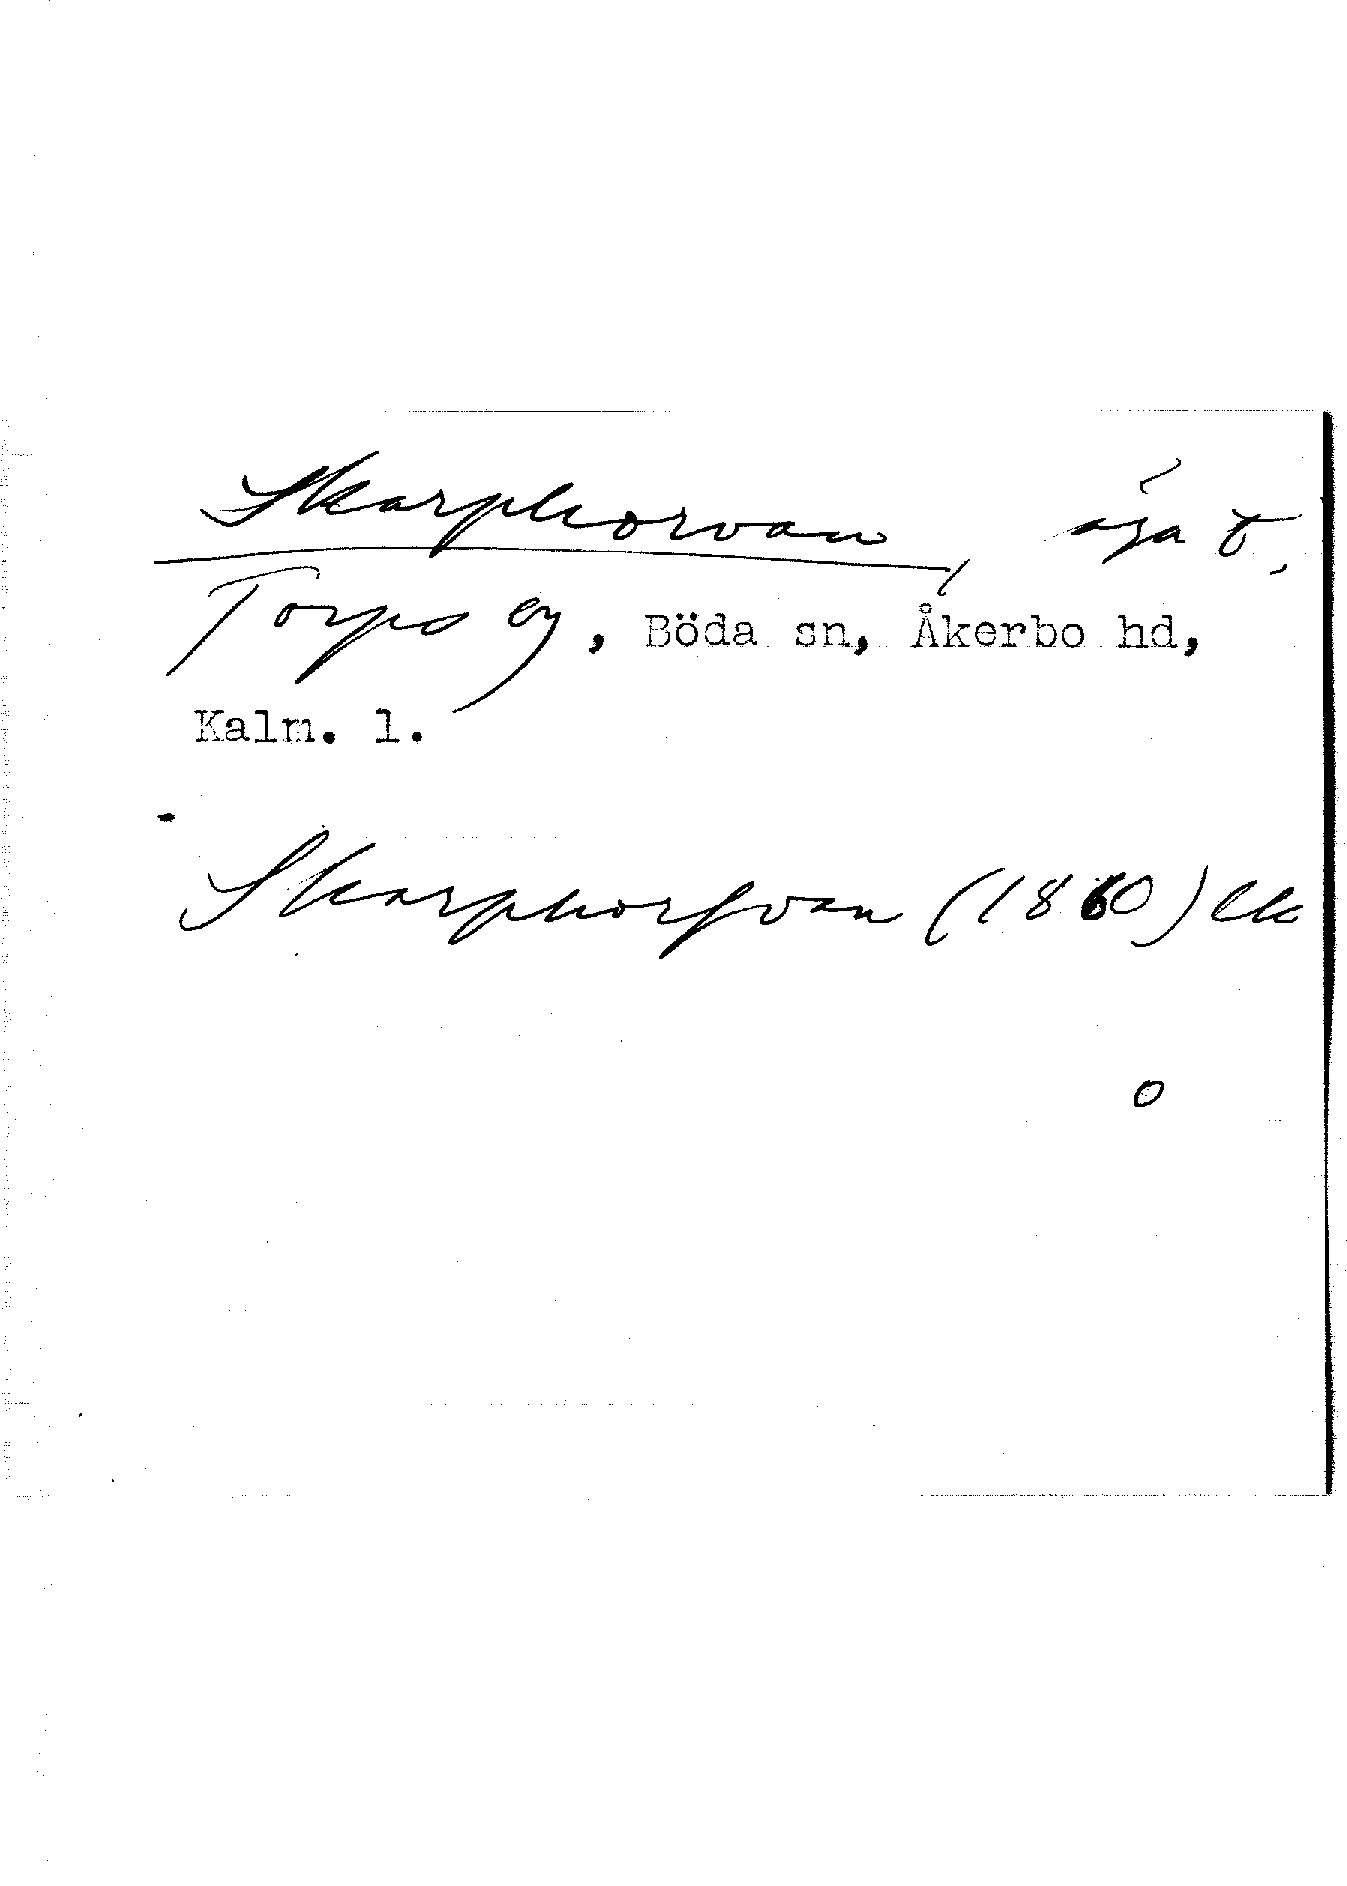 Skarphorvan, äga t.
Torps by, Böda sn, Åkerbo hd,
Kalm. l.
Skarphorfvan (1860) ek
o